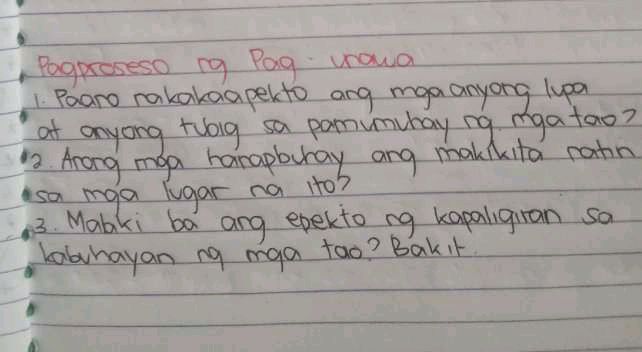 Pagproseso ng Pag-unawa
1. Paano nakakaapekto ang mga anyong lupa
at anyong tubig sa pamumuhay ng mga tao?
2. Anong mga hanapbuhay ang makikita natin
sa mga lugar na ito?
3. Malaki ba ang epekto ng kapaligiran sa
kabuhayan ng mga tao? Bakit.